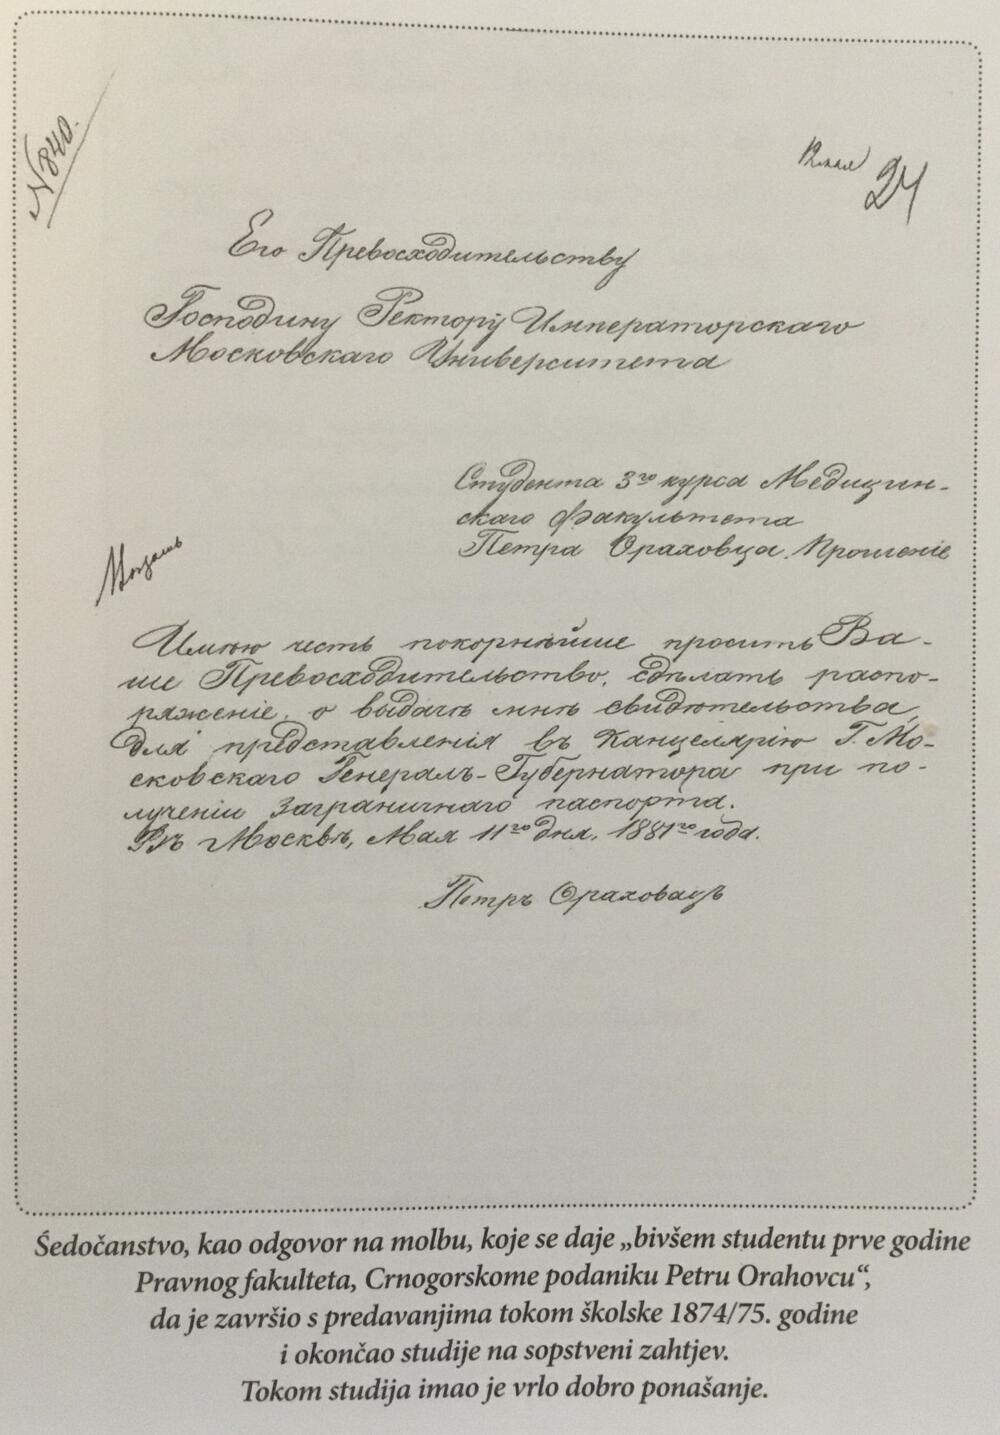 N 840.
12 мая
24
Его Превосходительству
Господину Ректору Императорскаго
Московскаго Университета
Студента 3го курса Медицин-
скаго факультета
Петра Ораховца. Прошеніе
Имѣю честь покорнѣйше просить Ва-
ше Превосходительство, сдѣлать распо-
ряженіе, о выдачѣ мнѣ свидѣтельства,
для представленія въ Канцелярію Г. Мо-
сковскаго Генералъ-Губернатора при по-
лученіи заграничнаго паспорта.
Въ Москвѣ, Мая 11го дня, 1881го года.
Петръ Ораховацъ
Śedočanstvo, kao odgovor na molbu, koje se daje „bivšem studentu prve godine
Pravnog fakulteta, Crnogorskome podaniku Petru Orahovcu“,
da je završio s predavanjima tokom školske 1874/75. godine
i okončao studije na sopstveni zahtjev.
Tokom studija imao je vrlo dobro ponašanje.